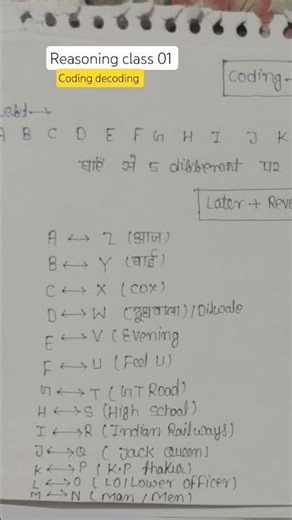 Reasoning class 01
Coding decoding
Coding-
A B C D E F G H I J K
बाएँ से 5 different पर
Later + Reve
A ↔ Z (आज)
B ↔ Y (बाई)
C ↔ X (COX)
D ↔ W (दूधवाला) / Dilwale
E ↔ V (Evening
F ↔ U (Feel U)
G ↔ T (GT Road)
H ↔ S (High School)
I ↔ R (Indian Railways)
J ↔ Q (Jack Queen)
K ↔ P (K.P thakur)
L ↔ O (LO/Lower officer)
M ↔ N (Man / Men)